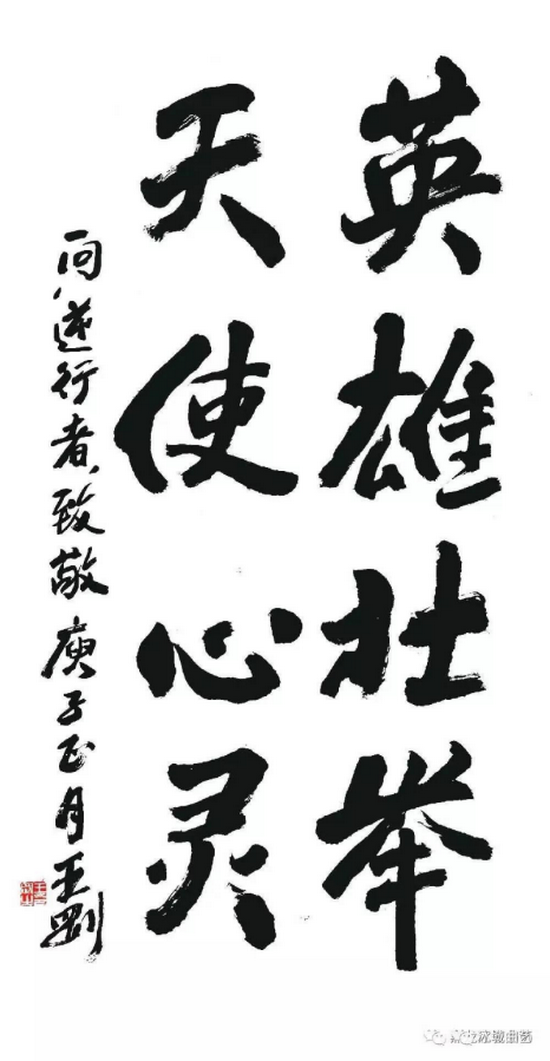 英雄壮举
天使心灵
向逆行者致敬 庚子正月 王刚